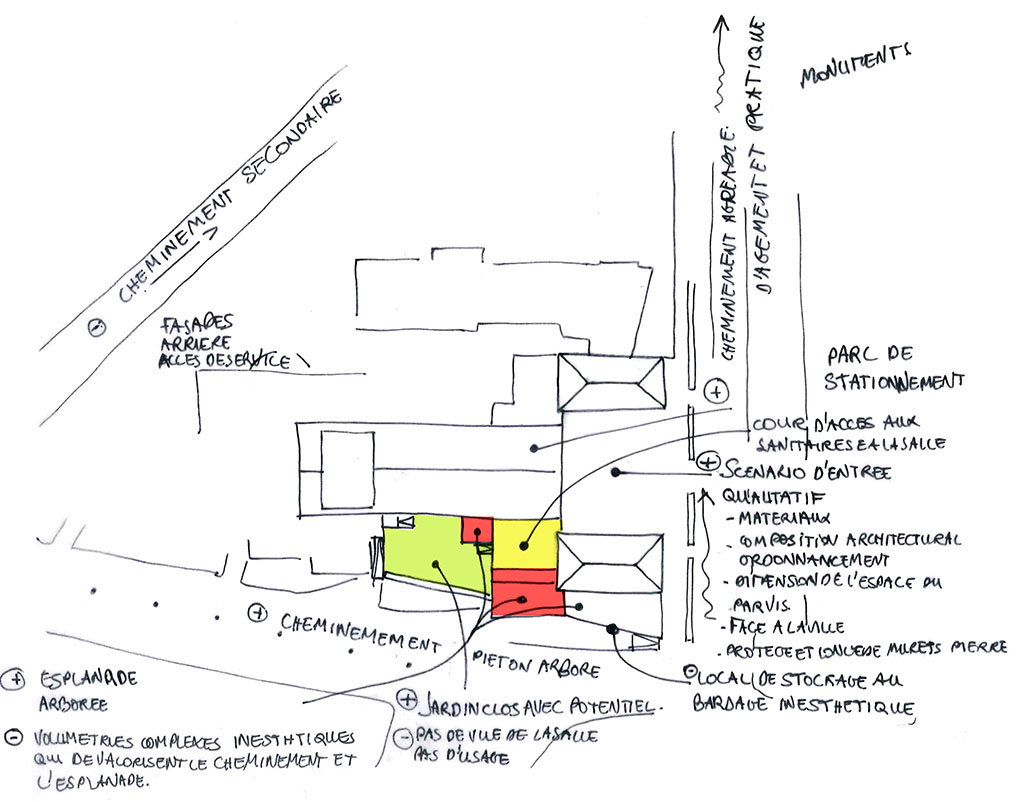 MONUMENTS
CHEMINEMENT AGREABLE
D'AGEMENT ET PRATIQUE
⊖ CHEMINEMENT SECONDAIRE
FASADES
ARRIERE
ACCES DE SERVICE
PARC DE
STATIONNEMENT
⊕
COUR D'ACCES AUX
SANITAIRES E A LA SALLE
⊕ SCENARIO D'ENTREE
QUALITATIF
- MATERIAUX
- COMPOSITION ARCHITECTURAL
ORDONNANCEMENT
- DIMENSION DE L'ESPACE DU
PARVIS
- FACE A LA VILLE
- PROTEGE ET DE MURETS PIERRE
⊖ LOCAL DE STOCKAGE AU
BARDAGE INESTHETIQUE
⊕ CHEMINEMEMENT
PIETON ARBORE
⊕ ESPLANADE
ARBOREE
⊖ VOLUMETRIES COMPLEXES INESTHTIQUES
QUI DEVALORISENT LE CHEMINEMENT ET
L'ESPLANADE.
⊕ JARDIN CLOS AVEC POTENTIEL.
⊖ PAS DE VUE DE LA SALLE
PAS D'USAGE